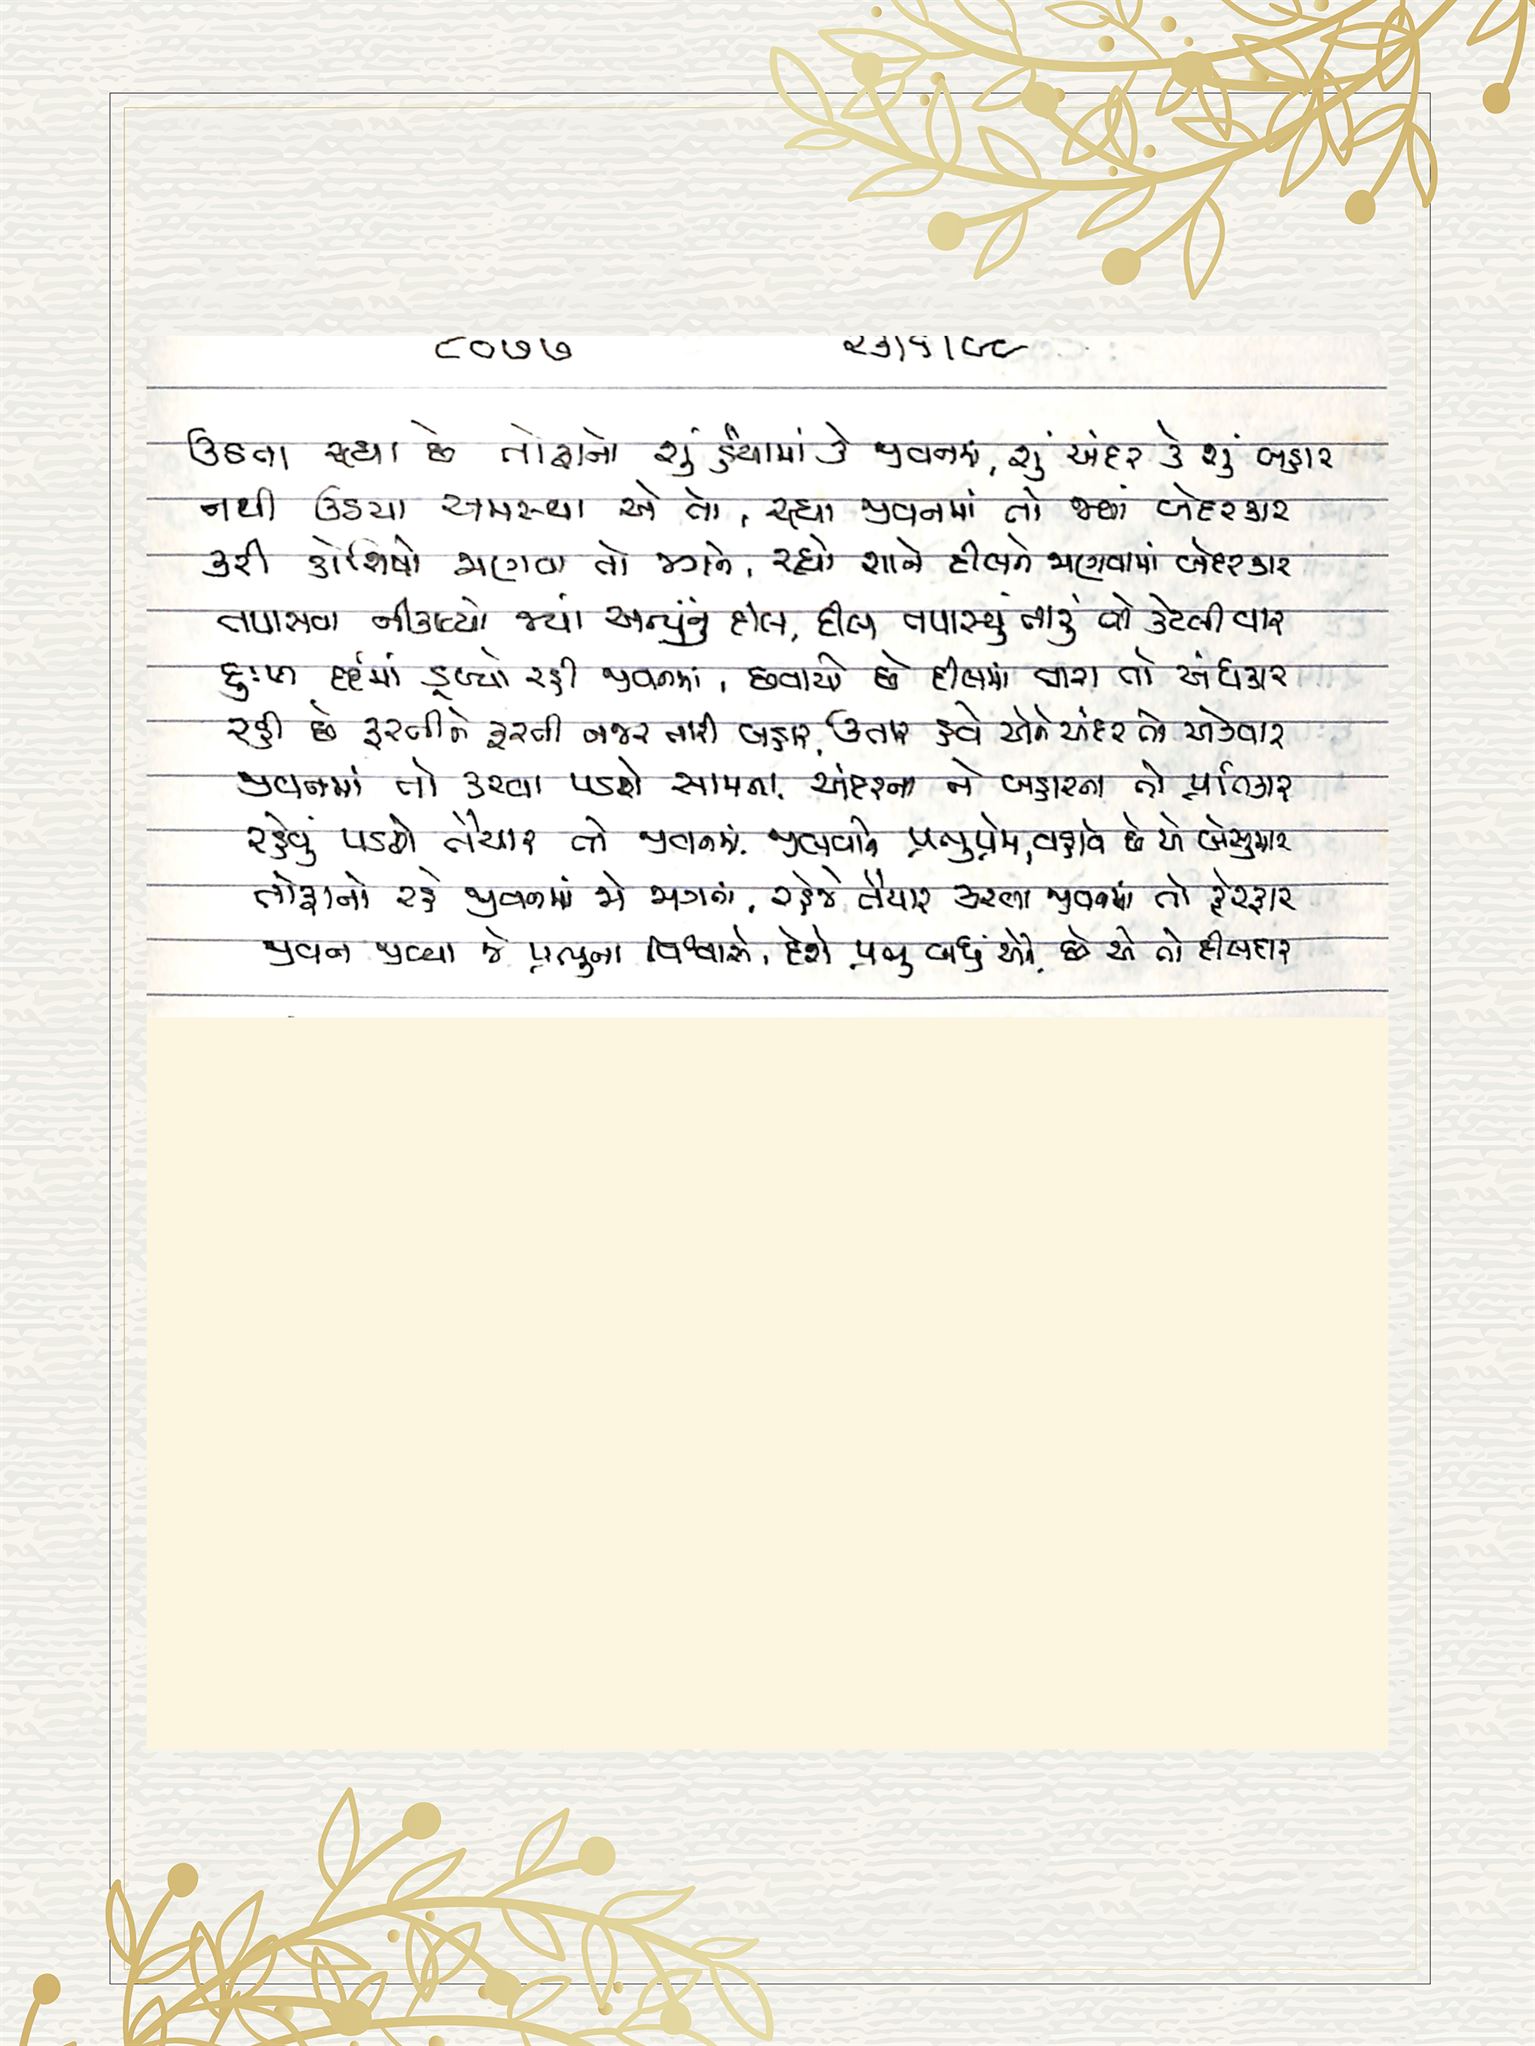 ૮૦૭૭ ૨૩/૫/૯૯
ઉઠતા રહ્યા છે તોફાનો શું હૈયામાં કે જીવનમાં, શું અંદર કે શું બહાર
નથી ઉઠયા અમસ્થા એ તો, રહ્યા જીવનમાં તો જ્યાં બેદરકાર
કરી કોશિષો જાણવા તો જગને, રહ્યો શાને દીલને જાણવામાં બેદરકાર
તપાસવા નીકળ્યો જ્યાં અન્યનું દીલ, દીલ તપાસ્યું તારું તો કેટલી વાર
દુઃખ દર્દમાં ડૂબ્યો રહી જીવનમાં, છવાયો છે દીલમાં તારા તો અંધકાર
રહી છે ફરતીને ફરતી નજર તારી બહાર, ઉતાર હવે એને અંદર તો એકવાર
જીવનમાં તો કરવા પડશે સામના, અંદરના ને બહારના તો પ્રતિકાર
રહેવું પડશે તૈયાર તો જીવનમાં, જીલવાને પ્રભુપ્રેમ, વહાવે છે એ બેસુમાર
તોફાનો રહે જીવનમાં જો જાગતાં, રહેજે તૈયાર કરવા જીવનમાં તો ફેરફાર
જીવન જીવ્યા જે પ્રભુના વિશ્વાસે, દેશે પ્રભુ બધું એને, છે એ તો દીલદાર